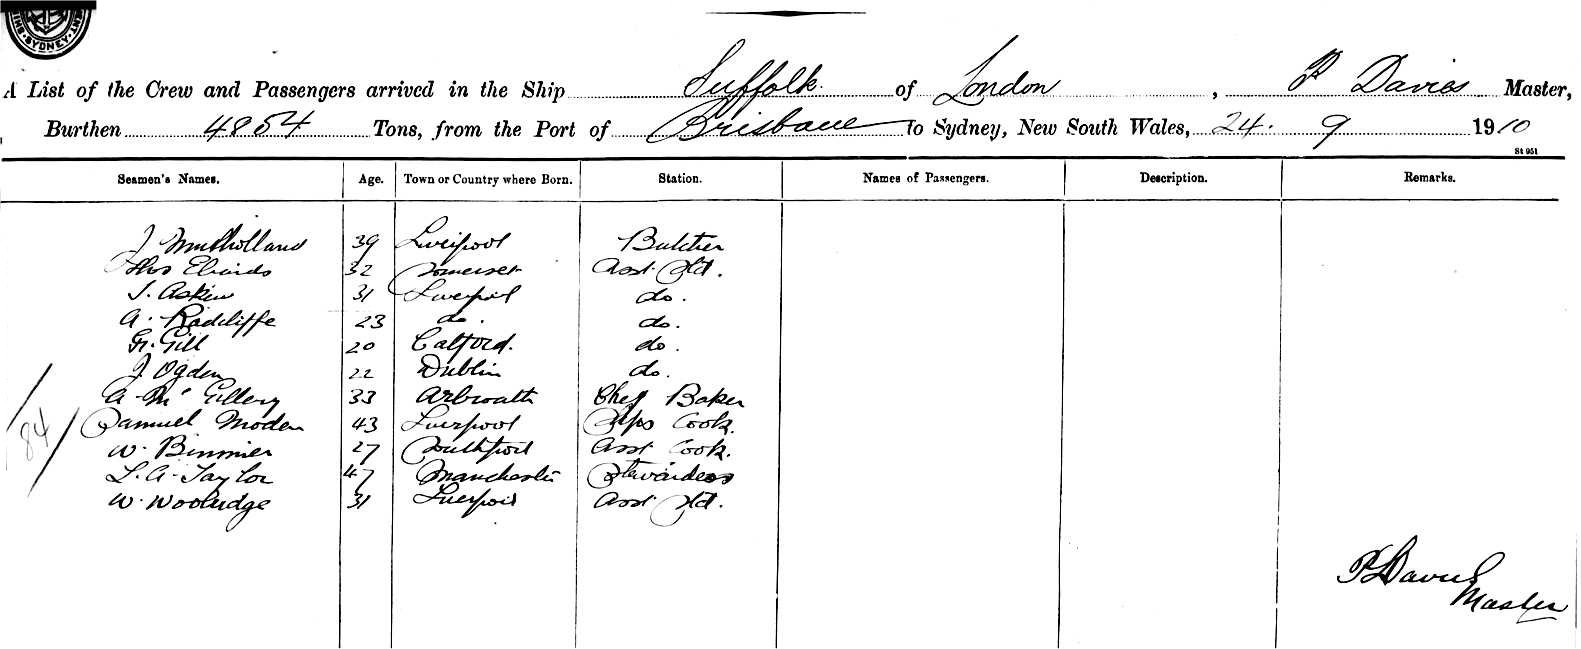 SYDNEY
A List of the Crew and Passengers arrived in the Ship Suffolk of London, P Davies Master,
Burthen 4854 Tons, from the Port of Brisbane to Sydney, New South Wales, 24. 9 1910
St 951
Seamen's Names. Age. Town or Country where Born. Station. Names of Passengers. Description. Remarks.
J Mulholland 39 Liverpool Butcher
Thos 32 Somerset Asst Std.
J. Askew 31 Liverpool do.
A. Radcliffe 23 do. do.
Gill 20 Catford. do.
J Ogden 22 Dublin do.
A. Mc Gillery 33 Arbroath Chef Baker
Samuel Moden 43 Liverpool Ships Cook.
W. Binmier 27 Southport Asst Cook.
L. A. Taylor 47 Manchester Stewardess
W. Wooludge 31 Liverpool Asst Std.
84
P Davies
Master